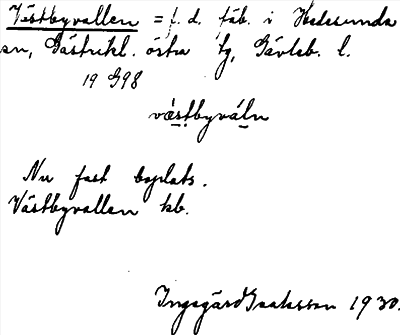 Västbyvallen = f. d. fäb. i Hedesunda
sn, Gästrikl. östra tg, Gävleb. l.
19 G98
væstbyváln
Nu fast boplats.
Västbyvallen kb.
Ingegärd Isaksson 1930.